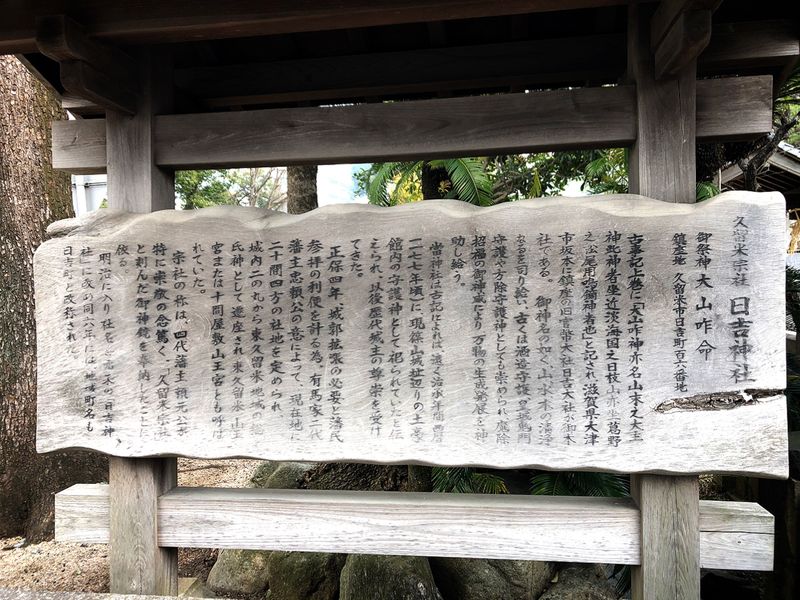 久留米宗社 日吉神社
御祭神 大山咋命
鎮座地 久留米市日吉町百六番地
古事記上巻に「大山咋神亦名山末之大主
神此神者坐近淡海国之日枝山亦坐葛野
之松尾用鳴鏑神者也」と記され、滋賀県大津
市坂本に鎮座の旧官幣大社日吉大社が御本
社である。 御神名の如く、山、水、木の
を司り給い、古くは
守護や方除守護神としても崇められ、魔除
招福の御神威により万物の生成発展を神
助し給う。
當神社は古記によれば、遠く治承年間(西暦
一一七七年頃)に現篠山城址辺りの土豪
館内の守護神として祀られていたと伝
えられ、以後歴代城主の尊崇を受け
てきた。
正保四年、城郭拡張の必要と藩民
参拝の利便を計る為、有馬家二代
藩主忠頼公の意によって、現在地に
二十間四方の社地を定められ
城内二の丸から東久留米地域の
氏神として遷座され、東久留米山王
宮または十間屋敷山王宮とも呼ば
れていた。
宗社の称は、四代藩主頼元公が
特に崇敬の念篤く、「久留米宗社」
と刻んだ御神鏡を奉納したことに
依る。
明治に入り社を
社」に改め同六年には地域町名も
日吉町と改称された。